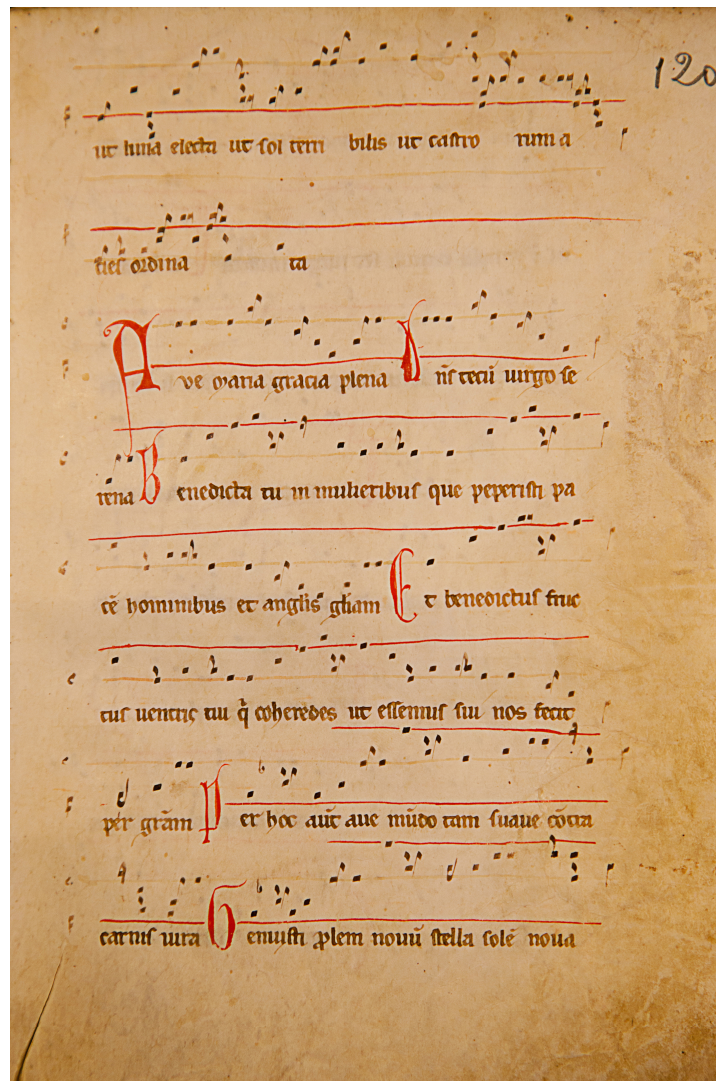 120
ut luna electa ut sol terri bilis ut castro rum a
cies ordina ta
Ave maria gracia plena Dn̄s tecū uirgo se
rena Benedicta tu in mulieribus que peperisti pa
cē hominibus et anglis gl̄iam Et benedictus fruc
tus uentris tui q̄ coheredes ut essemus sui nos fecit
per grām Per hoc aūt aue mūdo tam suaue cōtra
carnis iura Genuisti ꝓlem nouū stella solē noua